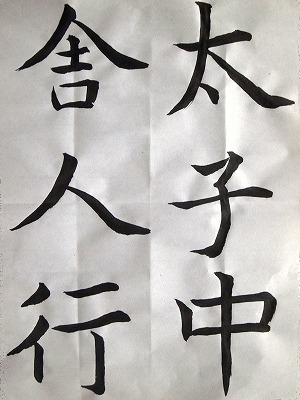 太子中
舎人行